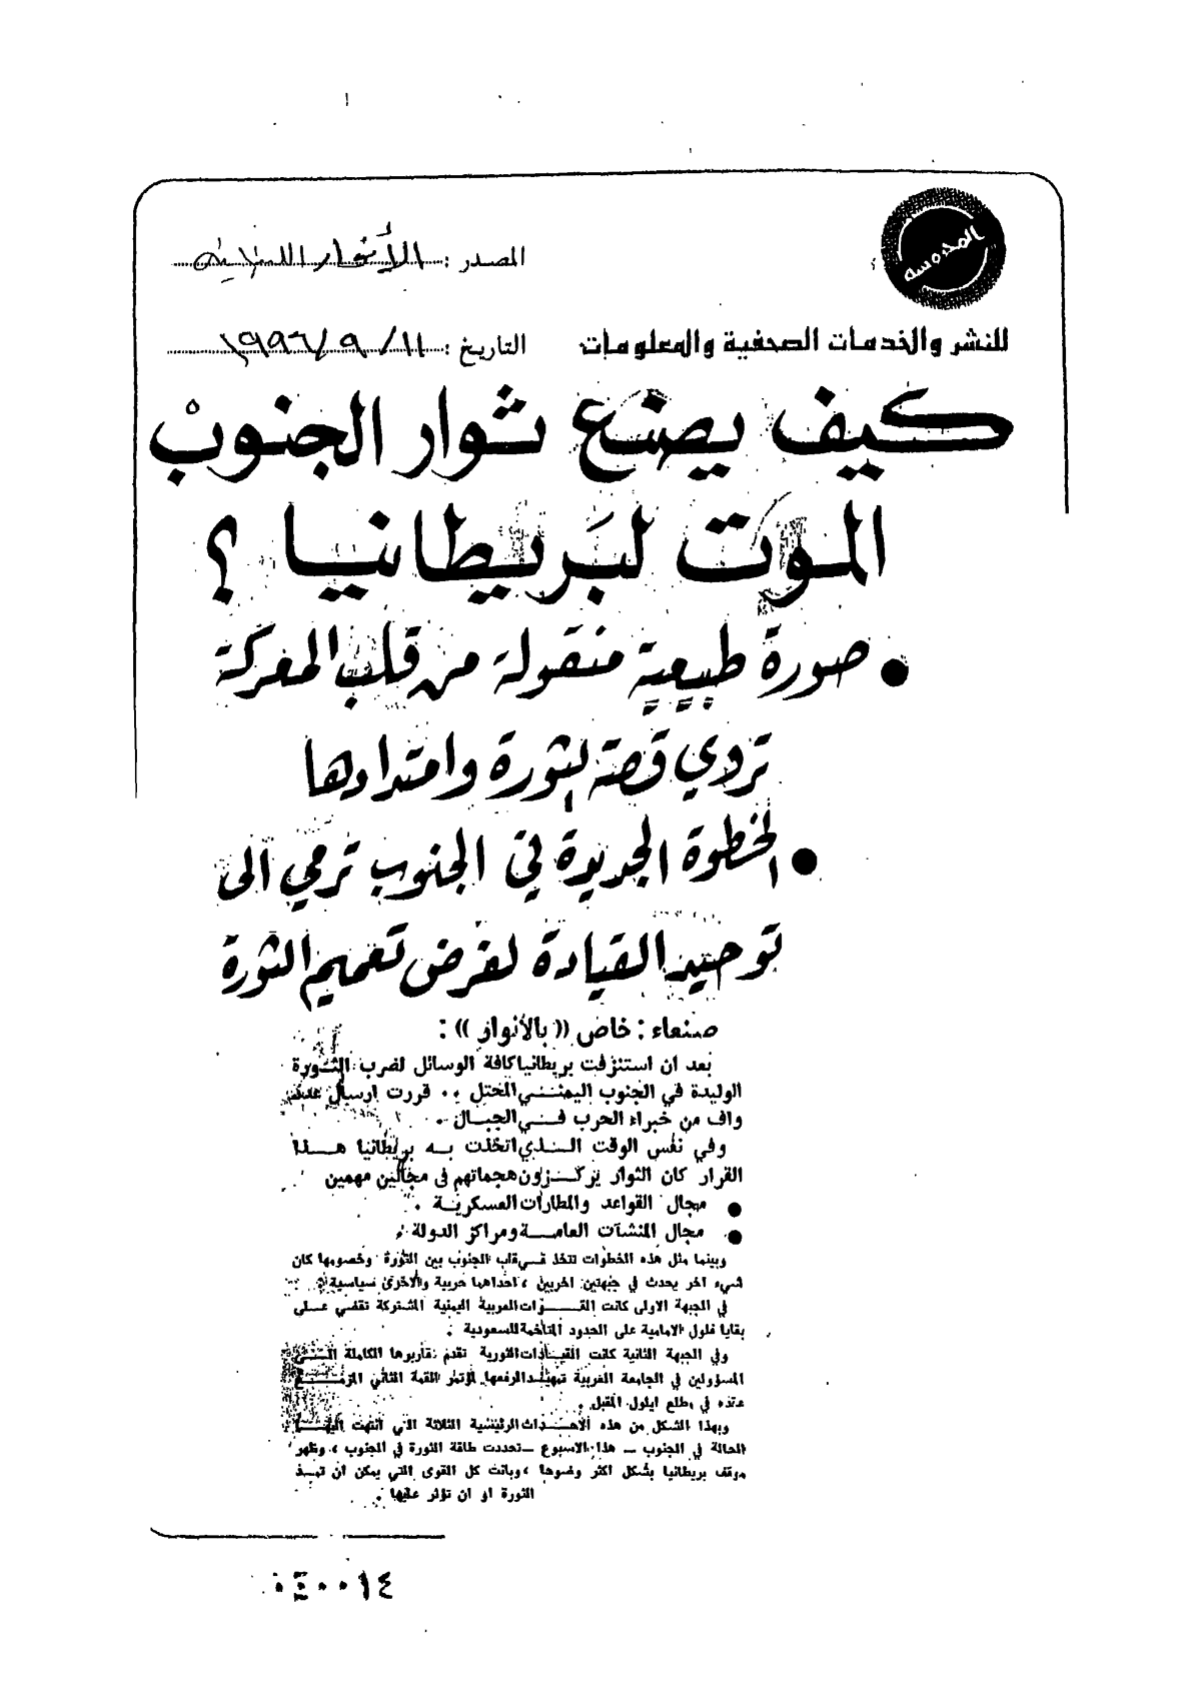 المحروسة
المصدر : الأنوار اللبنانية
للنشر والخدمات الصحفية والمعلومات
التاريخ : ١١ / ٩ / ١٩٩٦
كيف يصنع ثوار الجنوب
الموت لبريطانيا ؟
● صورة طبيعية منقولة من قلب المعركة
تروي قصة الثورة وامتدادها
● الخطوة الجديدة في الجنوب ترمي الى
توحيد القيادة لغرض تعميم الثورة
صنعاء : خاص « بالأنوار » :
بعد ان استنزفت بريطانيا كافة الوسائل لضرب الثورة
الوليدة في الجنوب اليمني المحتل .. قررت ارسال عدد
واف من خبراء الحرب في الجبال .
وفي نفس الوقت الذي اتخذت به بريطانيا هذا
القرار كان الثوار يركزون هجماتهم في مجالين مهمين
● مجال القواعد والمطارات العسكرية .
● مجال المنشآت العامة ومراكز الدولة .
وبينما مثل هذه الخطوات تتخذ في قلب الجنوب بين الثورة وخصومها كان
شيء اخر يحدث في جبهتين اخريين ، احداهما حربية والاخرى سياسية :
في الجبهة الاولى كانت القوات العربية اليمنية المشتركة تقضي على
بقايا فلول الامامية على الحدود المتاخمة للسعودية .
وفي الجبهة الثانية كانت القيادات الثورية تقدم تقاريرها الكاملة الى
المسؤولين في الجامعة العربية تمهيدا لرفعها لمؤتمر القمة الثاني المزمع
عقده في مطلع ايلول المقبل .
وبهذا الشكل من هذه الاحداث الرئيسية الثلاثة التي انتهت اليها
الحالة في الجنوب - هذا الاسبوع - تحددت طاقة الثورة في الجنوب ، وظهر
موقف بريطانيا بشكل اكثر وضوحا ، وبانت كل القوى التي يمكن ان تمد
الثورة او ان تؤثر عليها .